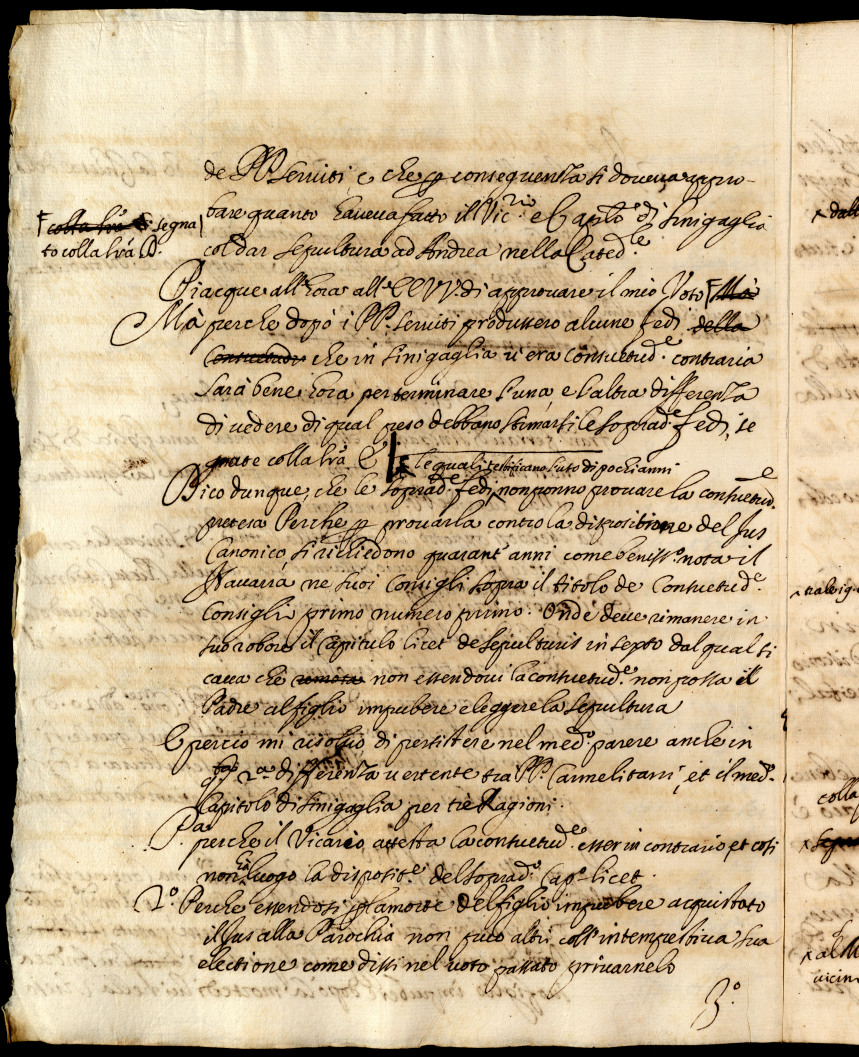 de PP. Serviti, e che p consequenza si doveva appro-
bare quanto haveva fatto il Vic.rio e Capitlo di Sinigaglia
segna
to colla lrã D.
col dar sepultura ad Andrea nella Cated.le
Piacque all'hora all'EE VV. di approvare il mio Voto
Mà perche dopò i PP. Serviti produssero alcune fedi della
Consuetudi che in Sinigaglia v'era consuetud.e contraria
Sarà bene hora per terminare l'una, e l'altra differenza
di vedere di qual peso debbano stimarsi le soprad.e fedi, se
gnate colla lrã le quali testificano solo di pochi anni
Dico dunque, che le soprad.e fedi non ponno provare la consuetud.e
pretesa Perche p provarla contro la dispositione del Jus
Canonico, si richiedono quarant'anni come beniss.o nota il
Navarra ne suoi Consigli sopra il titolo de Consuetud.e
Consiglio primo numero primo. Onde deve rimanere in
suo robore il Capitulo licet de sepulturis in sexto dal qual si
cava che non essendovi la consuetud.e non possa il
Padre al figlio impubere eleggere la sepultura
E perciò mi risolvo di persistere nel med.o parere anche in
q.ta 2.a differenza vertente tra PP. Carmelitani, et il med.o
Capitolo di Sinigaglia per trè Ragioni.
P.a perche il Vicario attesta la consuetud.e esser in contrario et così
non hà luogo la disposit.e del soprad.o Cap.o licet.
2.o Perche essendosi p la morte del figlio impubere acquistato
il Jus alla Parochia non può altri coll'intempestiva sua
elettione come dissi nel voto passato privarnelo
3.o